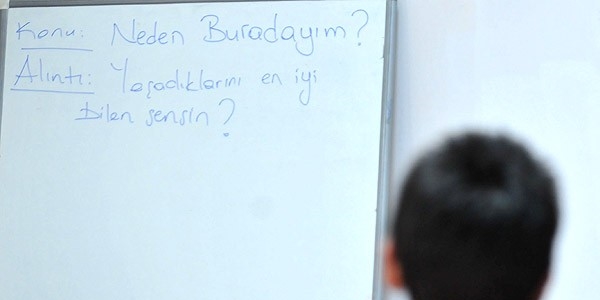 Konu: Neden Buradayım?
Alıntı: Yaşadıklarını en iyi
bilen sensin?